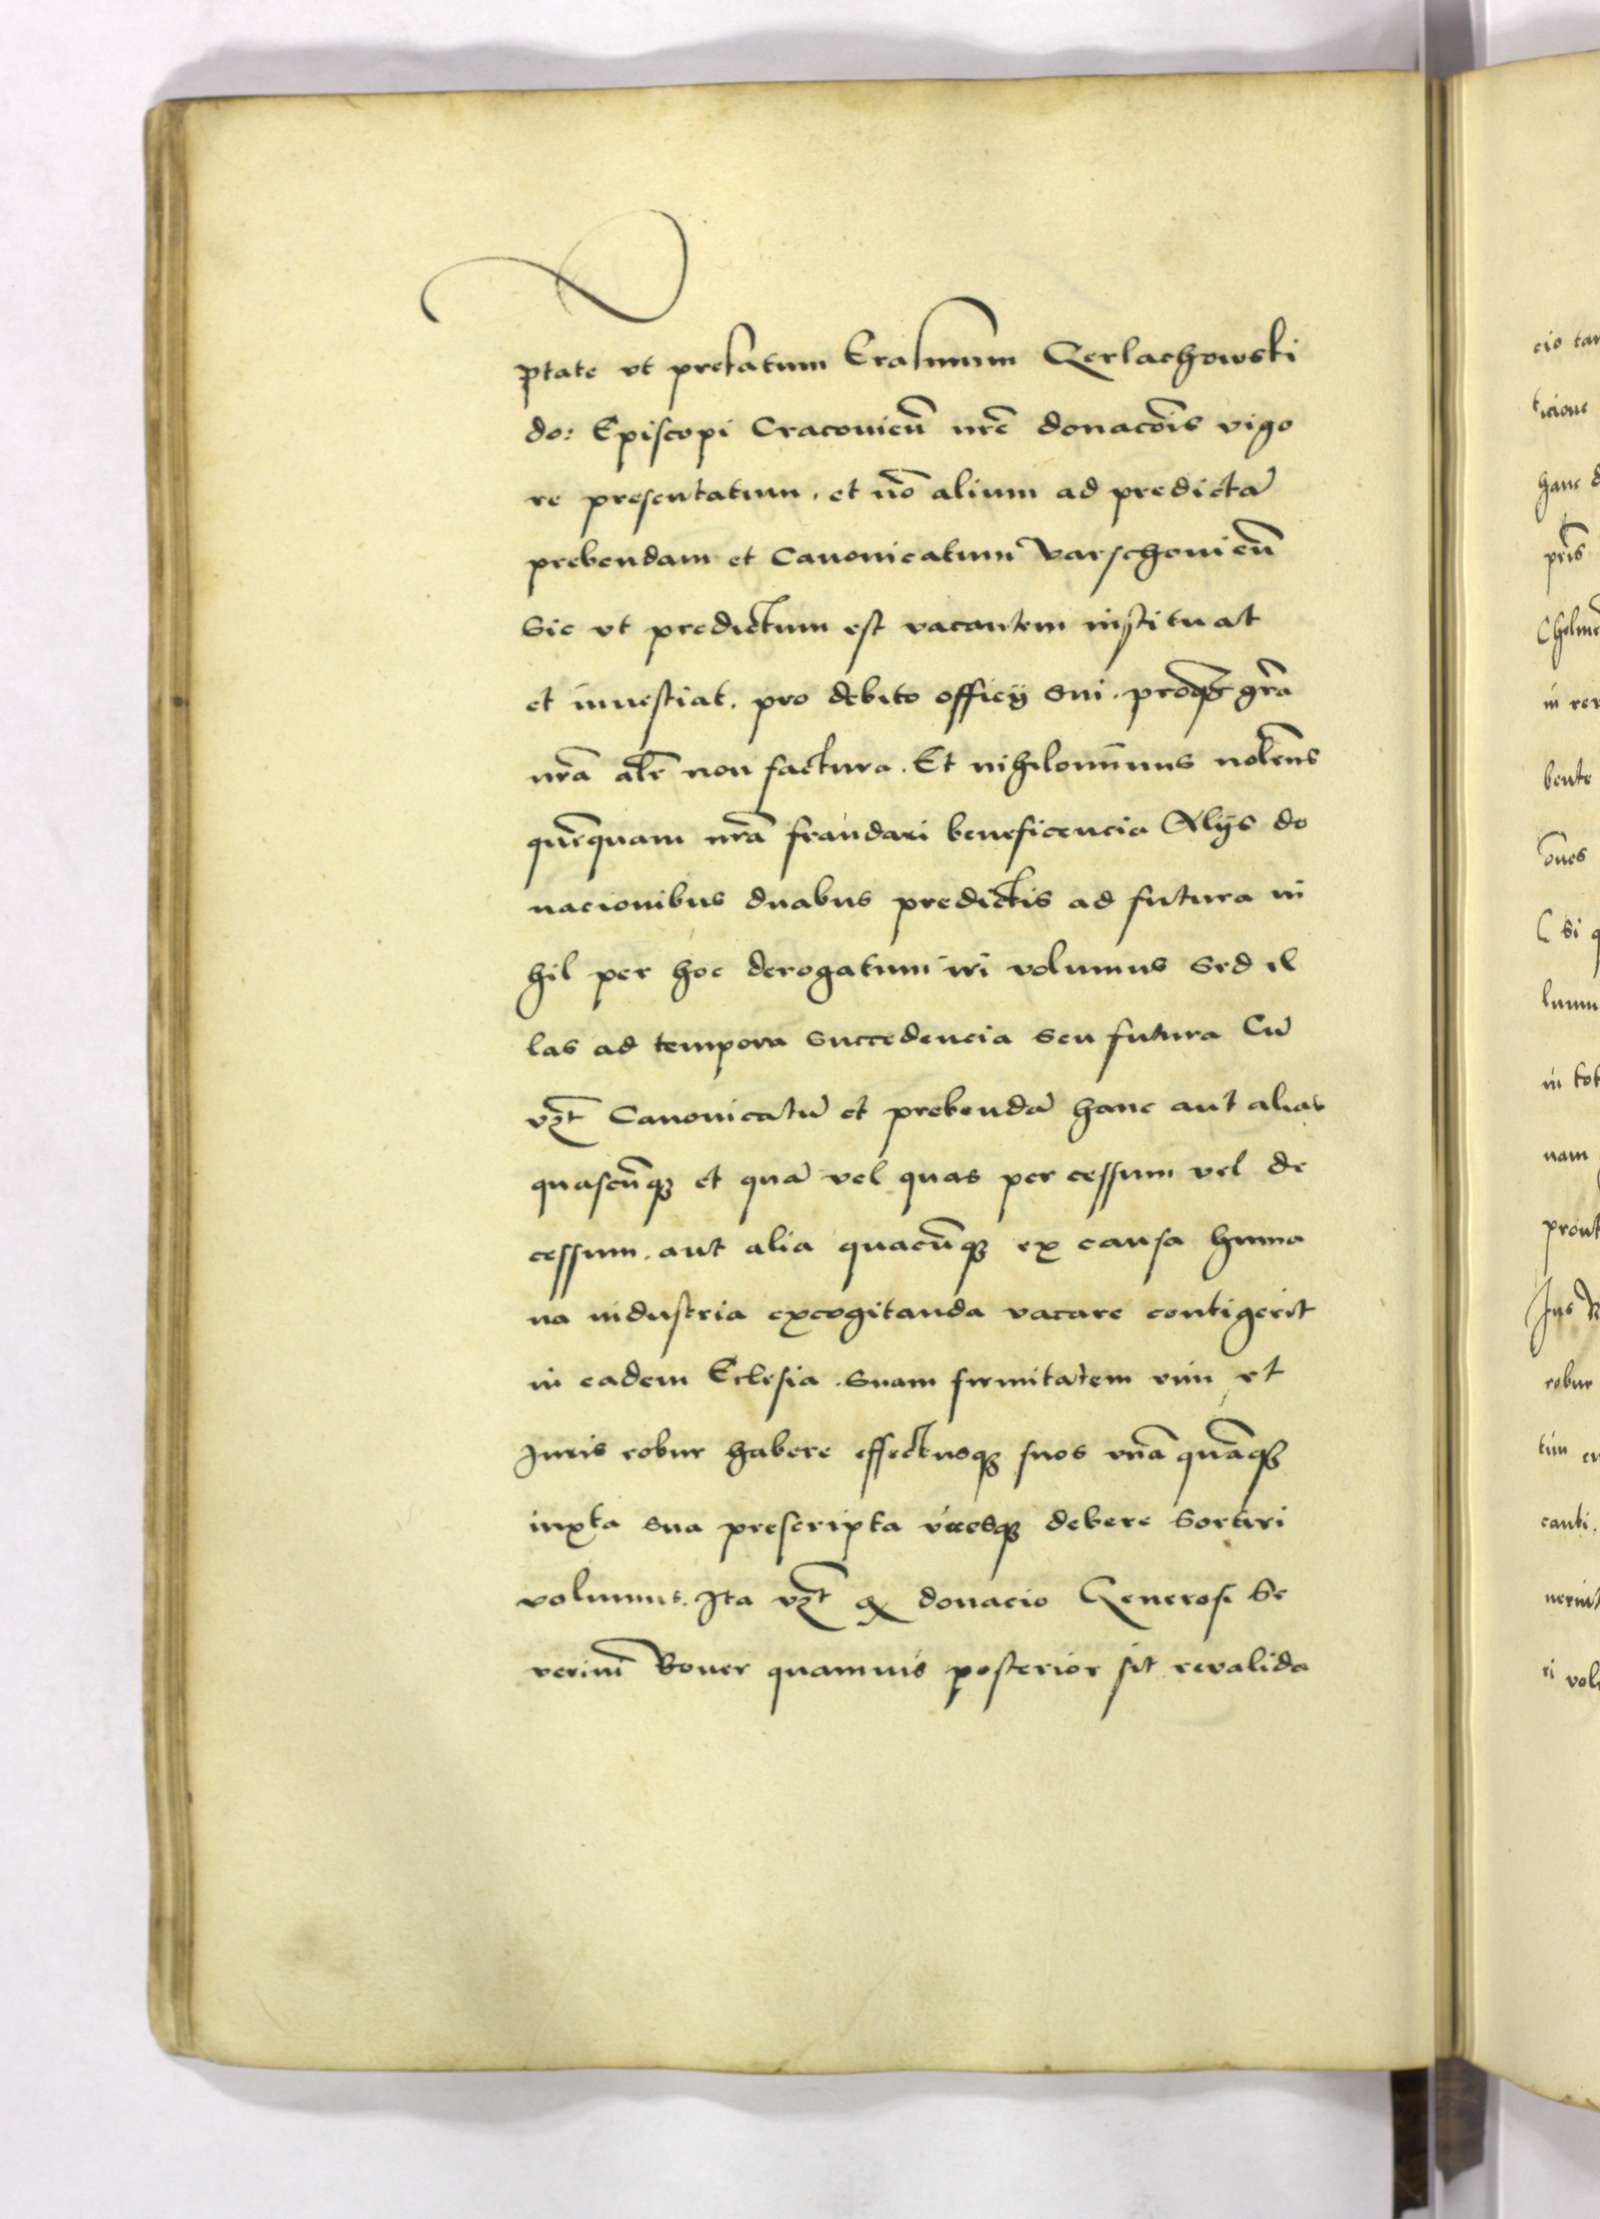 ptate vt prefatum Erasmum Gerlachowski
do: Episcopi Cracovien̄ nr̄e donacōis vigo
re presentatum, et nō alium ad predictā
prebendam et Canonicatum Varschovien̄
Sic vt predictum est vacantem instituat
et investiat. pro debito officij sui. gr̄a
nr̄a alr̄ non factura. Et nihilominus nolens
quenquam nr̄a fraudari beneficencia Alijs do
nacionibus duabus predictis ad futura ni
hil per hoc derogatum iri volumus Sed il
las ad tempora Succedencia seu futura Cū
vꝫt Canonicatū et prebendā hanc aut alias
quascūqꝫ et quā vel quas per cessum vel de
cessum. aut alia quacūqꝫ ex causa huma
na industria excogitanda vacare contigerit
in eadem Eclesia. Suam firmitatem vim et
Juris robur habere effectusqꝫ suos vnā quāqꝫ
iuxta sua prescripta vicesqꝫ debere Sortiri
volumus. Ita vꝫt ꝙ donacio Generosi Se
verini Boner quamvis posterior sit revalida
cio tan
hanc d
Chelme
in rer
bente
ōnes
Si q
in tot
nam
prout
Jus
robur
canti.
ri volu